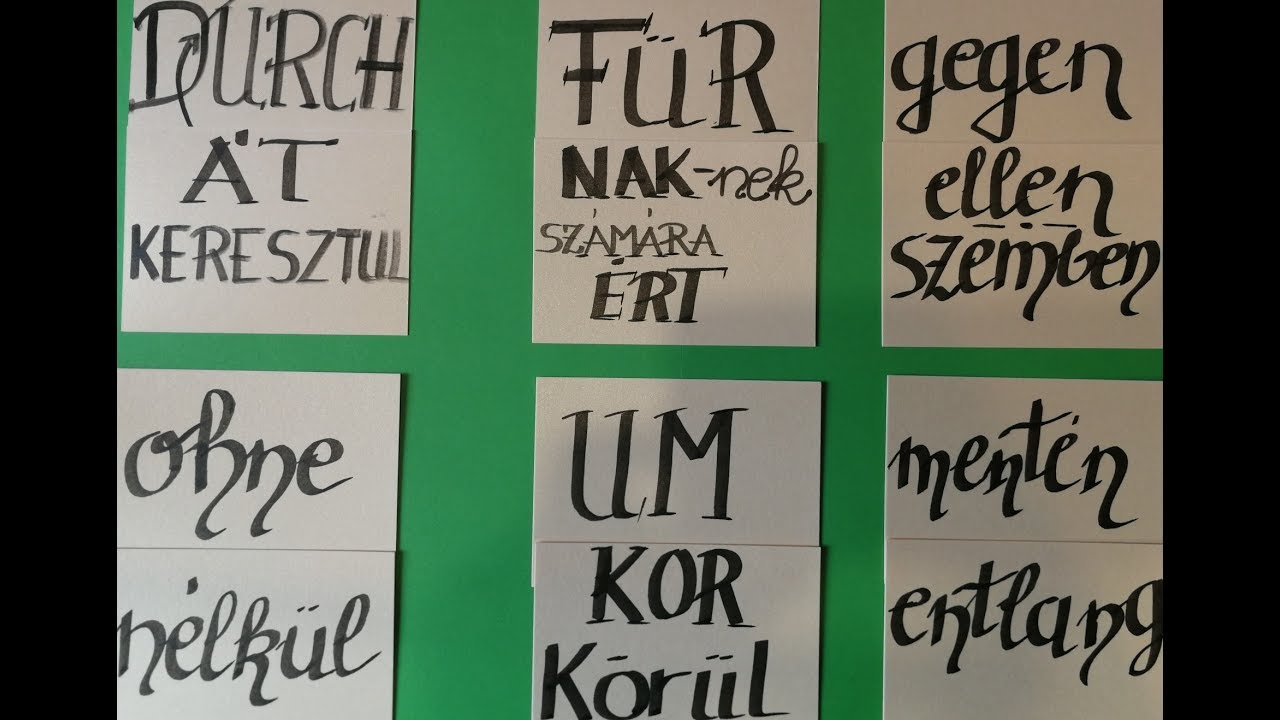 DURCH
ÁT
KERESZTÜL
FÜR
NAK-nek
SZÁMÁRA
ÉRT
gegen
ellen
szemben
ohne
nélkül
UM
KOR
Körül
mentén
entlang